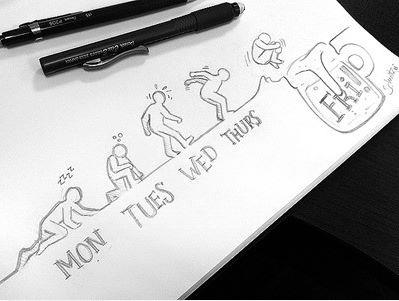 zzz
MON
TUES
WED
THURS
FRI